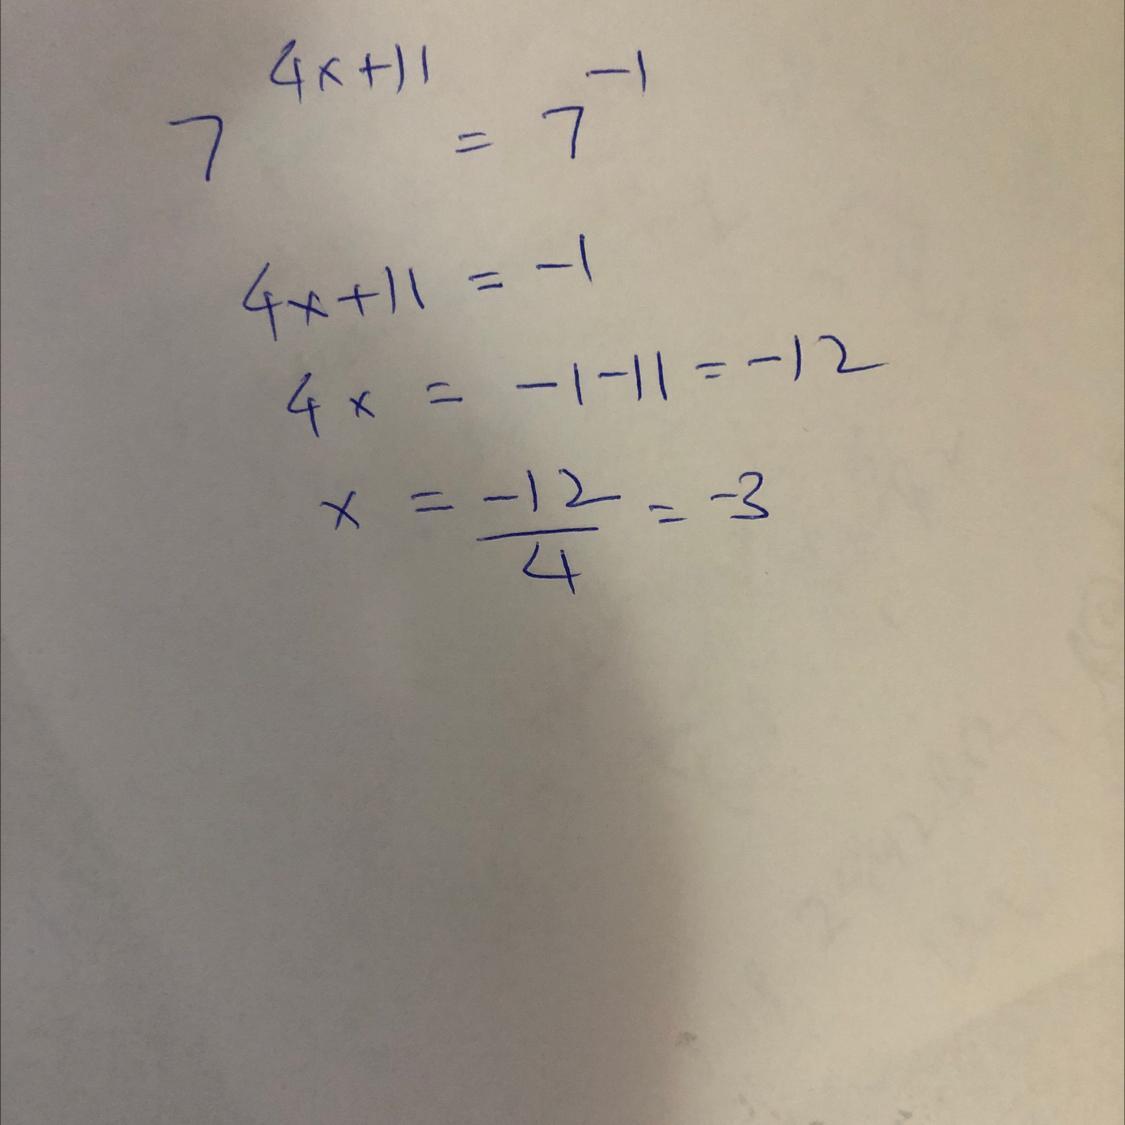 7^{4x+11} = 7^{-1}
4x+11 = -1
4x = -1-11 = -12
x = \frac{-12}{4} = -3